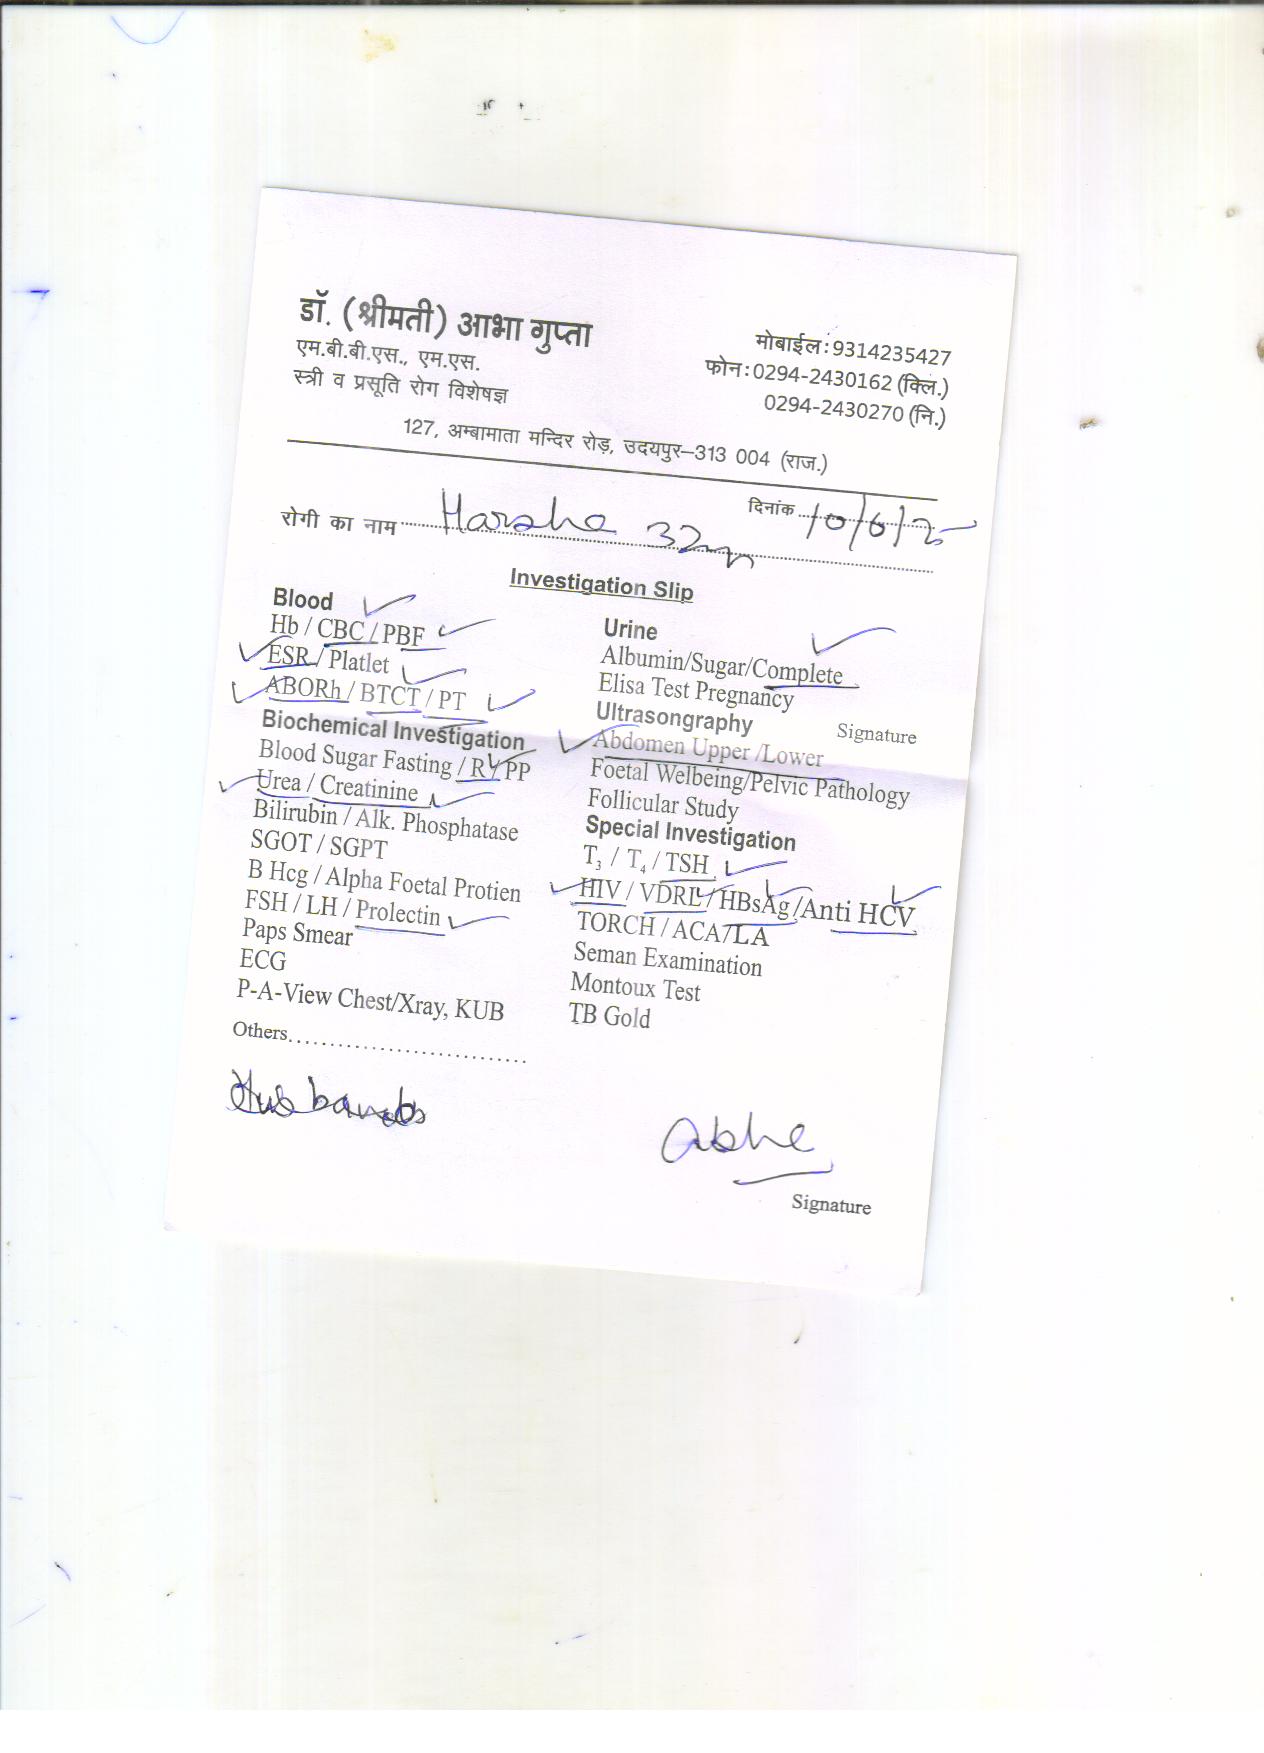 डॉ. (श्रीमती) आभा गुप्ता
एम.बी.बी.एस., एम.एस.
स्त्री व प्रसूति रोग विशेषज्ञ
मोबाईल:9314235427
फोन:0294-2430162 (क्लि.)
0294-2430270 (नि.)
127, अम्बामाता मन्दिर रोड़, उदयपुर–313 004 (राज.)
रोगी का नाम Harsha 32yr
दिनांक 10/6/25
Investigation Slip
Blood
Hb / CBC / PBF
ESR / Platlet
ABORh / BTCT / PT
Biochemical Investigation
Blood Sugar Fasting / R / PP
Urea / Creatinine
Bilirubin / Alk. Phosphatase
SGOT / SGPT
B Hcg / Alpha Foetal Protien
FSH / LH / Prolectin
Paps Smear
ECG
P-A-View Chest/Xray, KUB
Others............................
Urine
Albumin/Sugar/Complete
Elisa Test Pregnancy
Ultrasongraphy
Signature
Abdomen Upper /Lower
Foetal Welbeing/Pelvic Pathology
Follicular Study
Special Investigation
T3 / T4 / TSH
HIV / VDRL / HBsAg /Anti HCV
TORCH / ACA/LA
Seman Examination
Montoux Test
TB Gold
Husbands
Abha
Signature